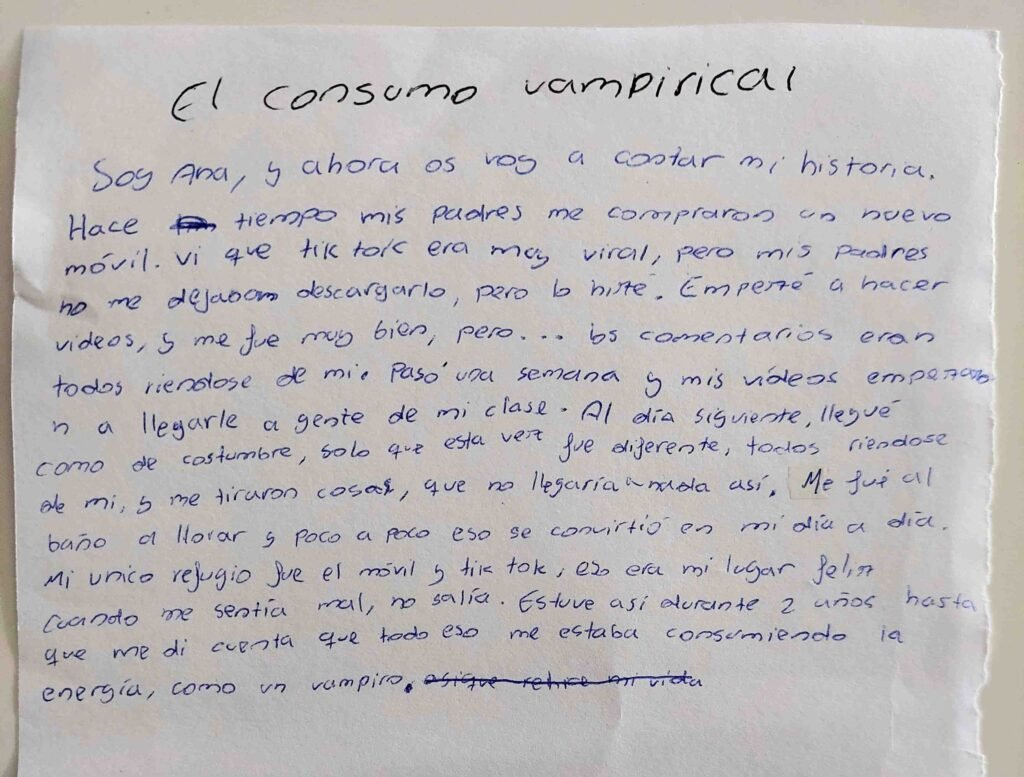 El consumo vampirical
Soy Ana, y ahora os voy a contar mi historia.
Hace tiempo mis padres me compraron un nuevo
móvil. Vi que tik tok era muy viral, pero mis padres
no me dejaban descargarlo, pero lo hice. Empezé a hacer
videos, y me fue muy bien, pero... los comentarios eran
todos riendose de mi. Pasó una semana y mis vídeos empezaro
n a llegarle a gente de mi clase. Al día siguiente, llegué
como de costumbre, solo que esta vez fue diferente, todos riendose
de mi, y me tiraron cosas, que no llegaría a nada así. Me fué al
baño a llorar y poco a poco eso se convirtió en mi día a día.
Mi unico refugio fue el móvil y tik tok, eso era mi lugar feliz
cuando me sentía mal, no salía. Estuve así durante 2 años hasta
que me di cuenta que todo eso me estaba consumiendo la
energía, como un vampiro. asique rehice mi vida